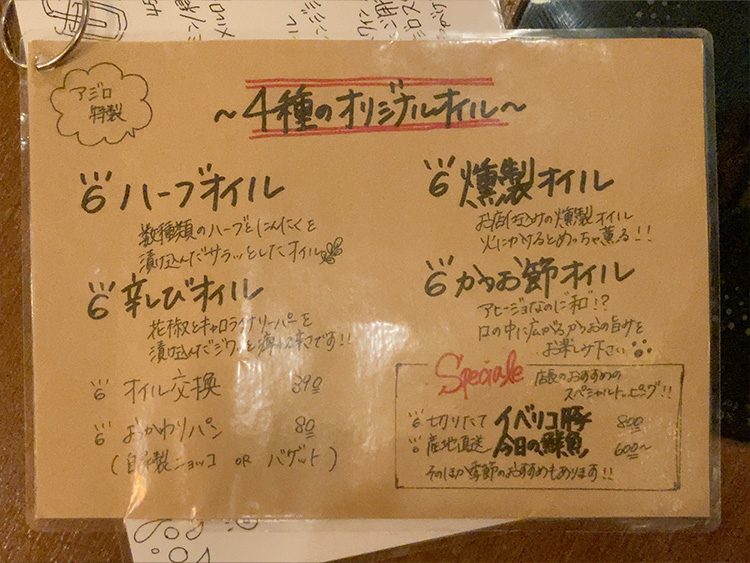 アジロ
特製
～4種のオリジナルオイル～
ハーブオイル
数種類のハーブとにんにくを
漬け込んだサラッとしたオイル
辛しびオイル
花椒とキャロライナリーパーを
漬け込んだジワッと痺れる辛さです!!
オイル交換 390
おかわりパン 80
(自家製ニョッコ OR バゲット)
燻製オイル
お店仕込みの燻製オイル
火にかけるとめっちゃ薫る!!
かつお節オイル
アヒージョなのに“和”!?
口の中に広がるかつおの旨みを
お楽しみ下さい
Speciale 店長のおすすめの
スペシャルトッピング!!
切りたて イベリコ豚 800
産地直送 今日の鮮魚 600～
そのほか季節のおすすめもあります!!